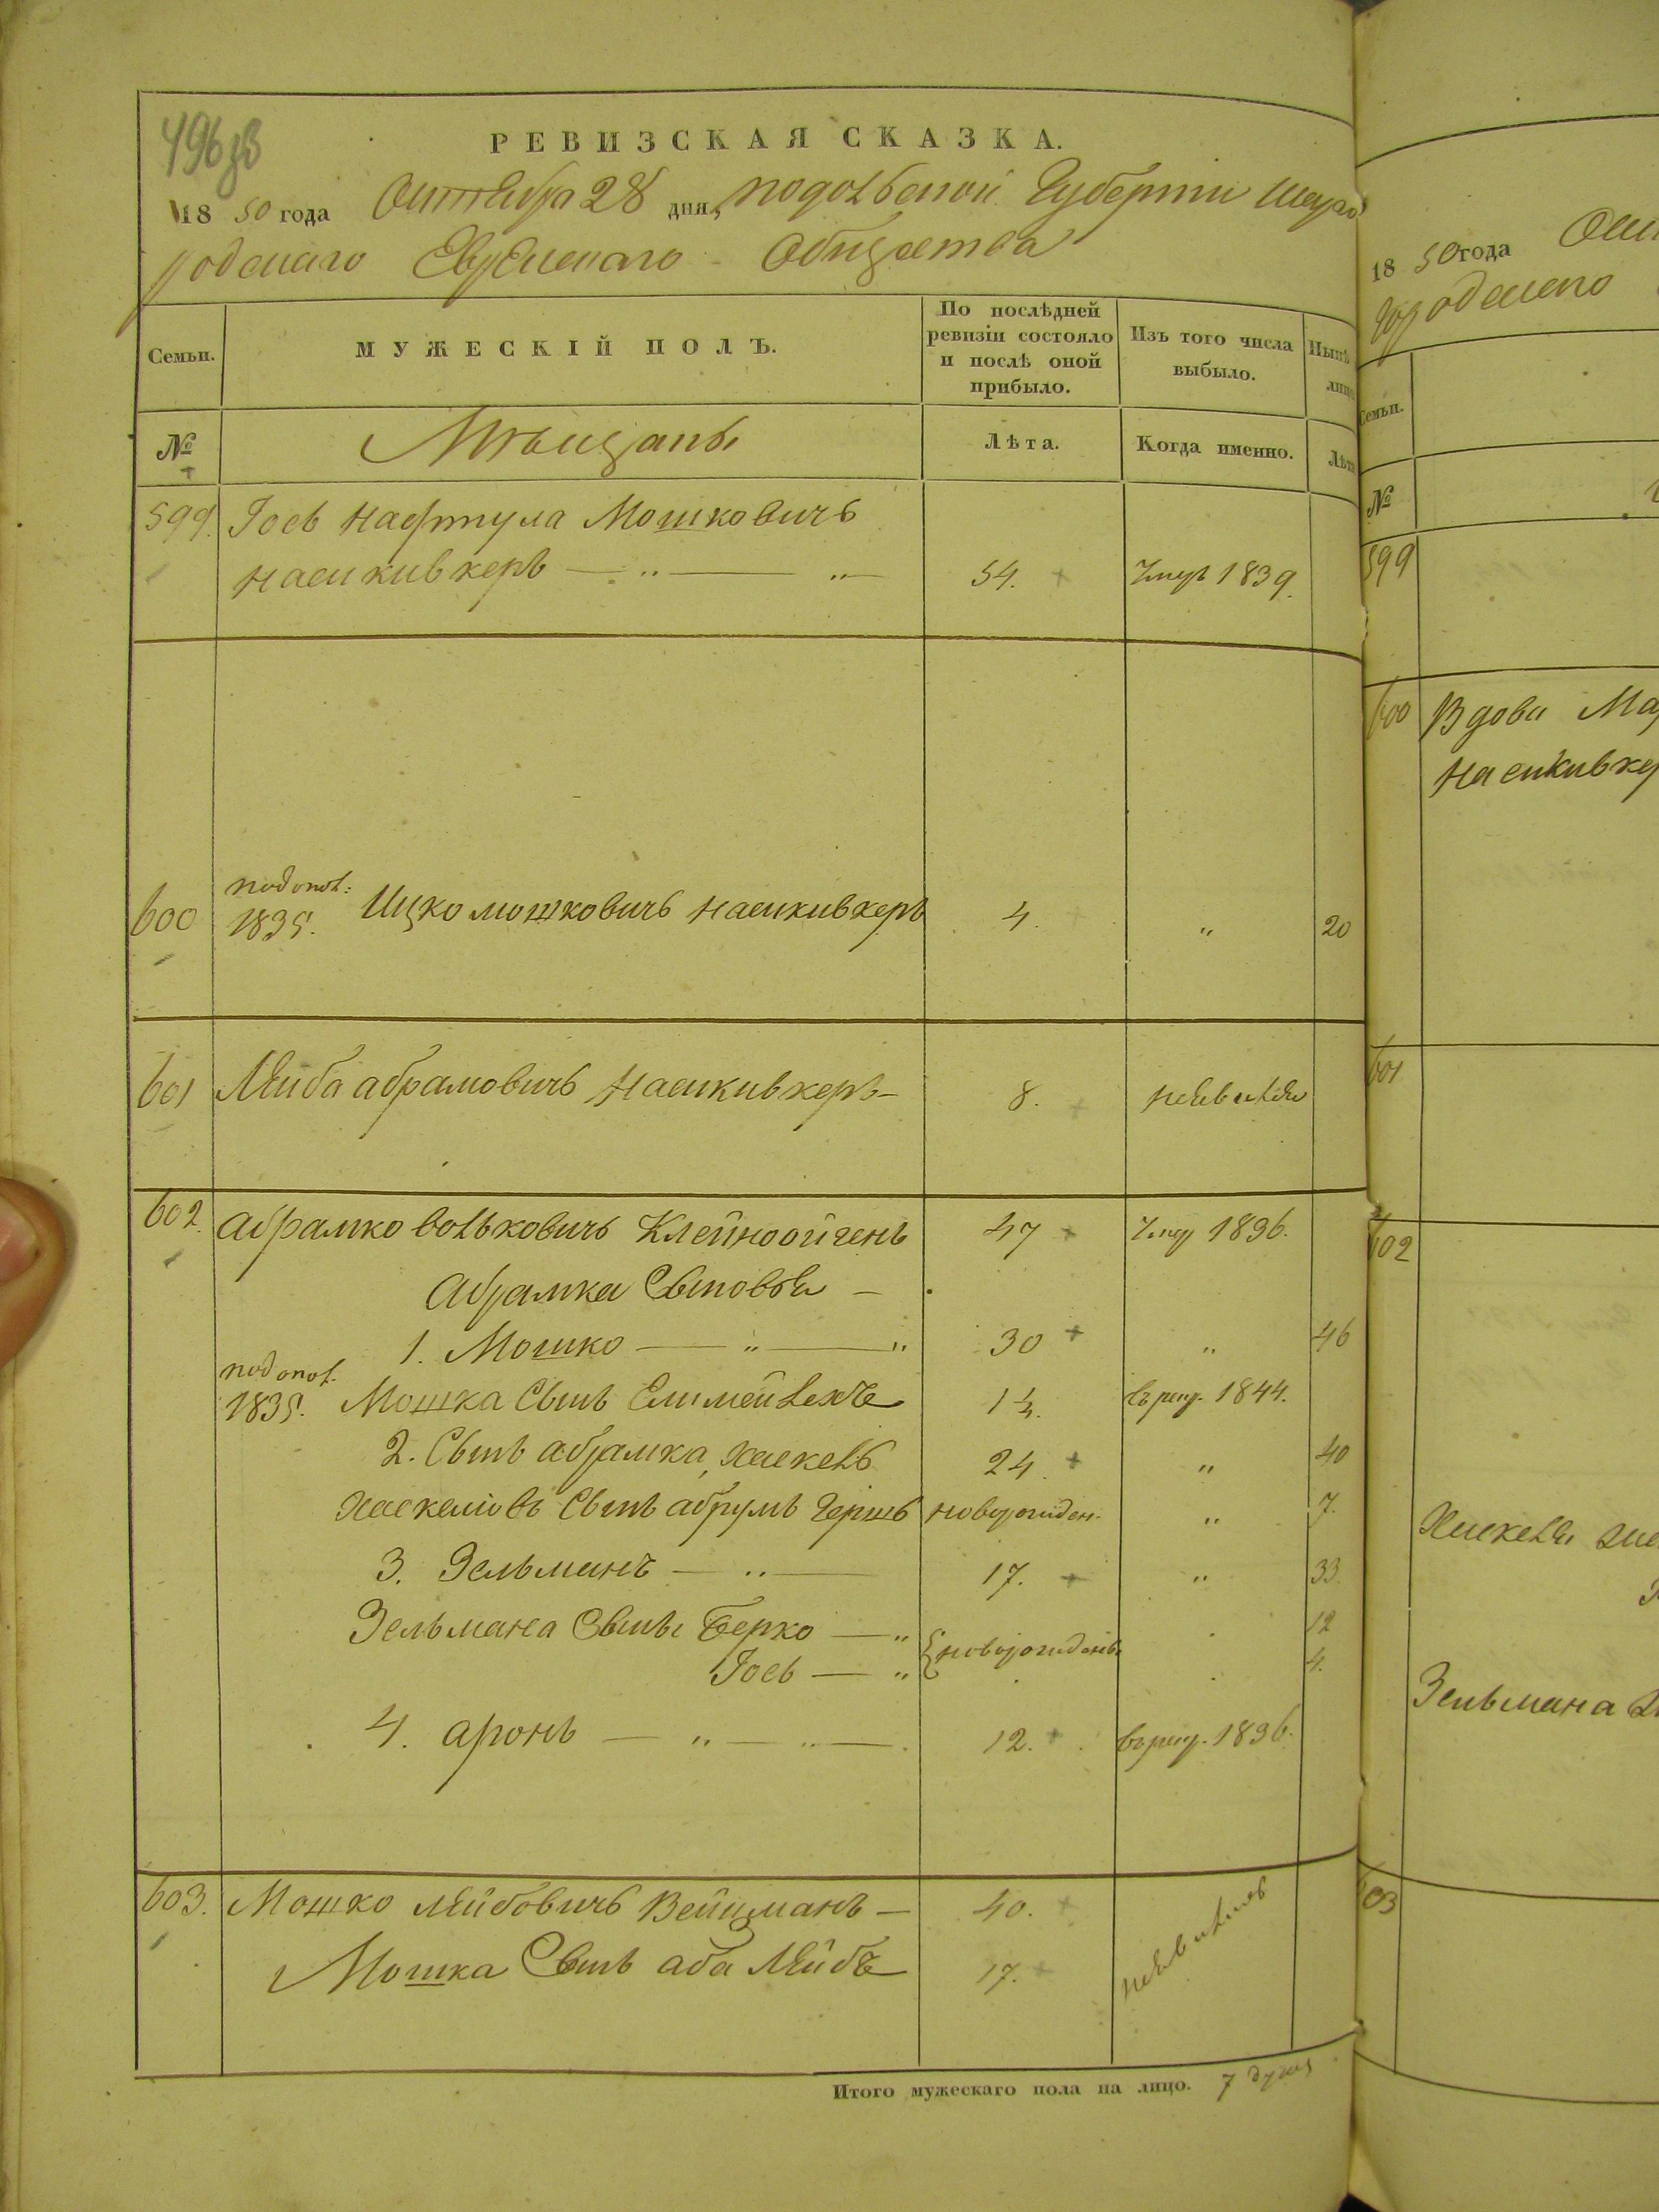 496 зв
РЕВИЗСКАЯ СКАЗКА.
1850 года Октября 28 дня, Подольской Губерніи Шаро
родскаго Еврейскаго Общества
Семьи.
МУЖЕСКІЙ ПОЛЪ.
По послѣдней ревизіи состояло и послѣ оной прибыло.
Изъ того числа выбыло.
Нынѣ лицо
№
Мѣщаны
Лѣта.
Когда именно.
Лѣта
599. Іось Нафтула Мошковичь
Насикивкеръ — „ — „ 54. Умеръ 1839.
по допол:
600 1835. Ицко Мошковичь Насикивкеръ 4. „ 20
601 Лейба Абрамовичь Насикивкеръ 8. неявился
602. Абрамко Вольковичь Клейнойгенъ 47 Умер 1836.
Абрамка Сыновья —
1. Мошко — „ — „ 30 „ 46
по допол.
1835. Мошка Сынъ Елимейлехъ 1¼. въ рекр. 1844.
2. Сынъ Абрамка, Хаскель 24. „ 40
Хаскеліовъ Сынъ Абрумъ Гершь новорожден. „ 7.
3. Зельманъ — „ — 17. „ 33.
Зельмана Сыны Берко — „ новорожденъ 12
Іось — „ 4.
4. Аронъ — „ — „ — 12. въ рекр. 1836.
603. Мошко Лейбовичь Вейцманъ — 40. неявились
Мошка Сынъ Аба Лейбъ 17.
Итого мужескаго пола на лицо. 7 душъ
1850 года
родскаго
Семьи.
№
599
600 Вдова
601
602
Хаскеля
Зельмана
603